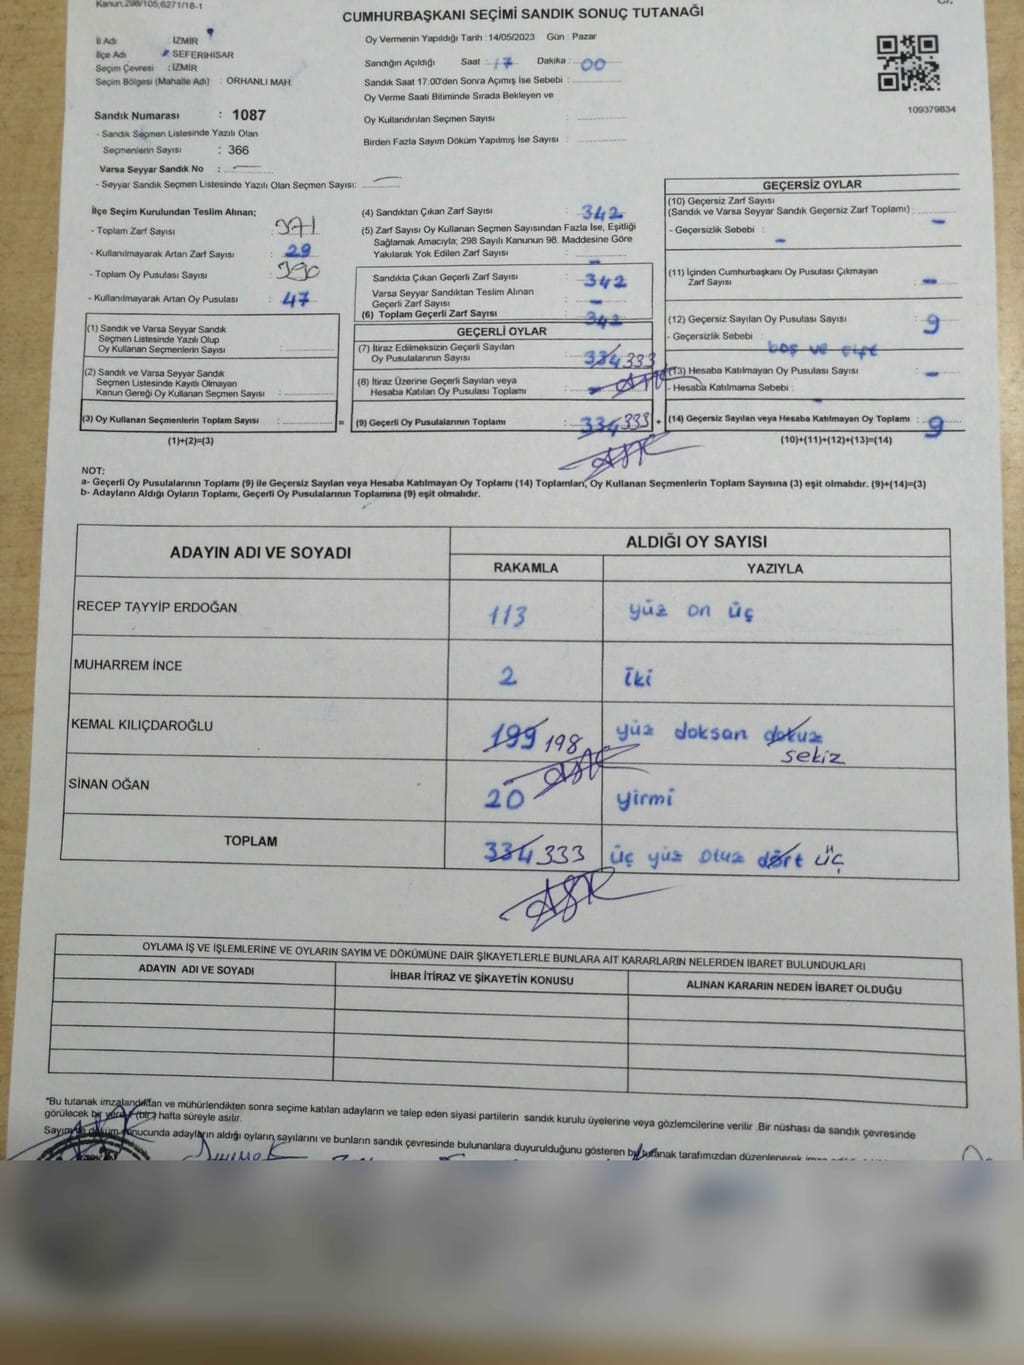 Kanun,298/105;6271/18-1
CUMHURBAŞKANI SEÇİMİ SANDIK SONUÇ TUTANAĞI
İl Adı : İZMİR
İlçe Adı : SEFERİHİSAR
Seçim Çevresi : İZMİR
Seçim Bölgesi (Mahalle Adı) : ORHANLI MAH.
Oy Vermenin Yapıldığı Tarih : 14/05/2023 Gün : Pazar
Sandığın Açıldığı Saat : 17 Dakika : 00
Sandık Saat 17:00'den Sonra Açımış İse Sebebi :
Oy Verme Saati Bitiminde Sırada Bekleyen ve
Oy Kullandırılan Seçmen Sayısı :
Birden Fazla Sayım Döküm Yapılmış İse Sayısı :
109379834
Sandık Numarası : 1087
- Sandık Seçmen Listesinde Yazılı Olan
Seçmenlerin Sayısı : 366
Varsa Seyyar Sandık No : —
- Seyyar Sandık Seçmen Listesinde Yazılı Olan Seçmen Sayısı: —
İlçe Seçim Kurulundan Teslim Alınan;
- Toplam Zarf Sayısı : 371
- Kullanılmayarak Artan Zarf Sayısı : 29
- Toplam Oy Pusulası Sayısı : 390
- Kullanılmayarak Artan Oy Pusulası : 47
(1) Sandık ve Varsa Seyyar Sandık
Seçmen Listesinde Yazılı Olup
Oy Kullanan Seçmenlerin Sayısı :
(2) Sandık ve Varsa Seyyar Sandık
Seçmen Listesinde Kayıtlı Olmayan
Kanun Gereği Oy Kullanan Seçmen Sayısı :
(3) Oy Kullanan Seçmenlerin Toplam Sayısı : =
(1)+(2)=(3)
(4) Sandıktan Çıkan Zarf Sayısı : 342
(5) Zarf Sayısı Oy Kullanan Seçmen Sayısından Fazla İse, Eşitliği
Sağlamak Amacıyla; 298 Sayılı Kanunun 98. Maddesine Göre
Yakılarak Yok Edilen Zarf Sayısı : –
Sandıkta Çıkan Geçerli Zarf Sayısı : 342
Varsa Seyyar Sandıktan Teslim Alınan
Geçerli Zarf Sayısı : –
(6) Toplam Geçerli Zarf Sayısı : 342
GEÇERLİ OYLAR
(7) İtiraz Edilmeksizin Geçerli Sayılan
Oy Pusulalarının Sayısı : 334 333
(8) İtiraz Üzerine Geçerli Sayılan veya
Hesaba Katılan Oy Pusulası Toplamı : –
(9) Geçerli Oy Pusulalarının Toplamı : 334 333 +
GEÇERSİZ OYLAR
(10) Geçersiz Zarf Sayısı
(Sandık ve Varsa Seyyar Sandık Geçersiz Zarf Toplamı) : –
- Geçersizlik Sebebi : –
(11) İçinden Cumhurbaşkanı Oy Pusulası Çıkmayan
Zarf Sayısı : –
(12) Geçersiz Sayılan Oy Pusulası Sayısı : 9
- Geçersizlik Sebebi : boş ve çift
(13) Hesaba Katılmayan Oy Pusulası Sayısı : –
- Hesaba Katılmama Sebebi : –
(14) Geçersiz Sayılan veya Hesaba Katılmayan Oy Toplamı : 9
(10)+(11)+(12)+(13)=(14)
NOT:
a- Geçerli Oy Pusulalarının Toplamı (9) ile Geçersiz Sayılan veya Hesaba Katılmayan Oy Toplamı (14) Toplamları, Oy Kullanan Seçmenlerin Toplam Sayısına (3) eşit olmalıdır. (9)+(14)=(3)
b- Adayların Aldığı Oyların Toplamı, Geçerli Oy Pusulalarının Toplamına (9) eşit olmalıdır.
ADAYIN ADI VE SOYADI
ALDIĞI OY SAYISI
RAKAMLA YAZIYLA
RECEP TAYYİP ERDOĞAN 113 yüz on üç
MUHARREM İNCE 2 iki
KEMAL KILIÇDAROĞLU 199 198 yüz doksan dokuz sekiz
SİNAN OĞAN 20 yirmi
TOPLAM 334 333 üç yüz otuz dört üç
OYLAMA İŞ VE İŞLEMLERİNE VE OYLARIN SAYIM VE DÖKÜMÜNE DAİR ŞİKAYETLERLE BUNLARA AİT KARARLARIN NELERDEN İBARET BULUNDUKLARI
ADAYIN ADI VE SOYADI İHBAR İTİRAZ VE ŞİKAYETİN KONUSU ALINAN KARARIN NEDEN İBARET OLDUĞU
*Bu tutanak imzalandıktan ve mühürlendikten sonra seçime katılan adayların ve talep eden siyasi partilerin sandık kurulu üyelerine veya gözlemcilerine verilir. Bir nüshası da sandık çevresinde
görülecek bir yere (bir) hafta süreyle asılır.
Sayım ve döküm sonucunda adayların aldığı oyların sayılarını ve bunların sandık çevresinde bulunanlara duyurulduğunu gösteren bu tutanak tarafımızdan düzenlenerek